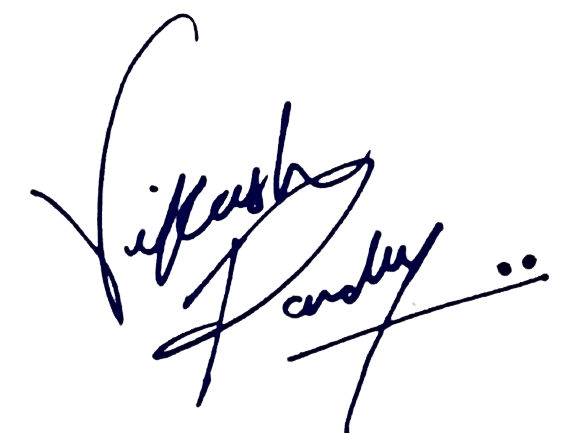 Vikash
Pandey